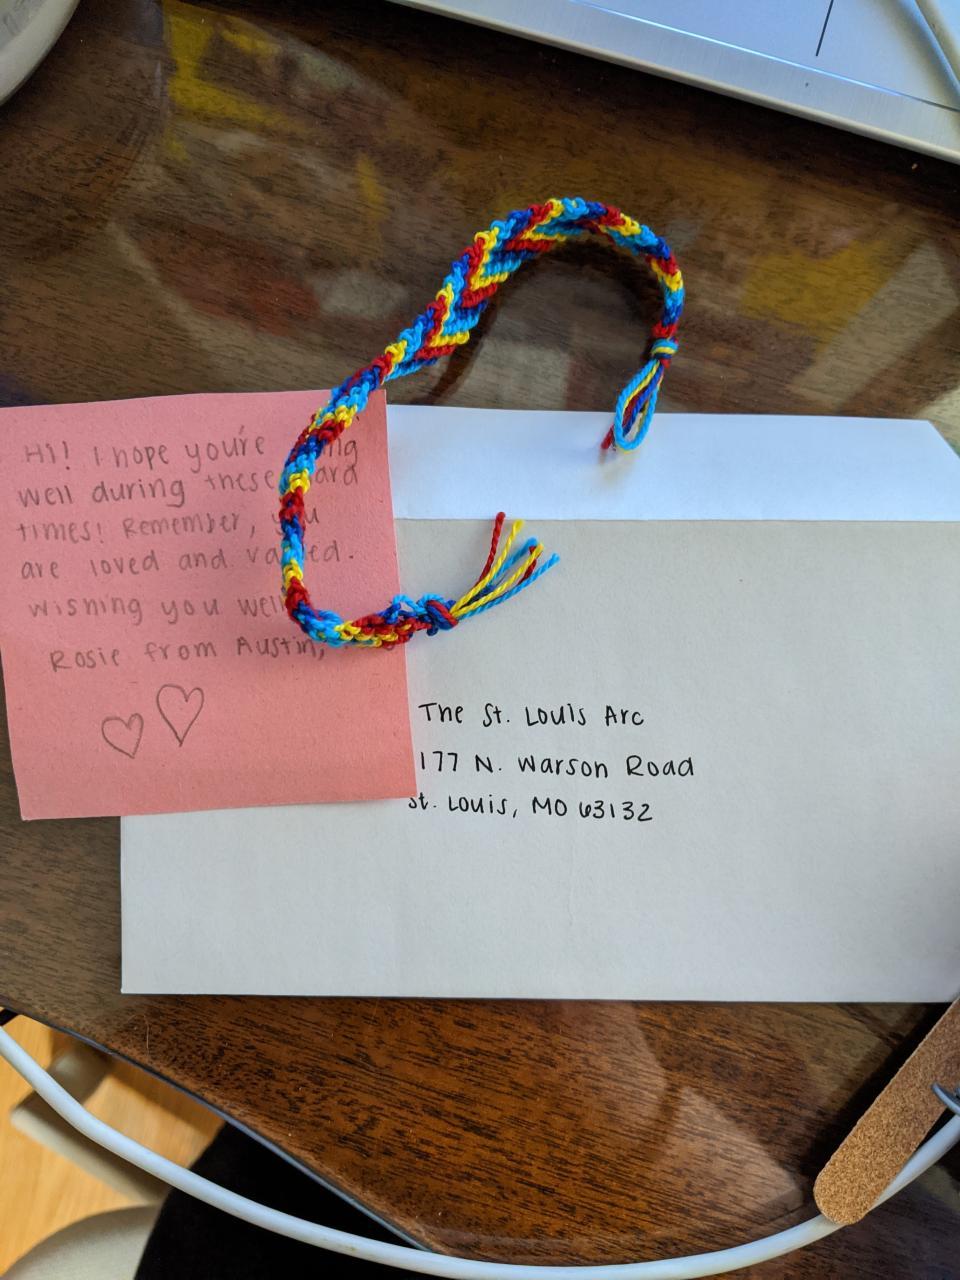 Hi! I hope you're
well during these
times! Remember,
are loved and
wishing you well
Rosie from Austin,
The St. Louis Arc
177 N. Warson Road
St. Louis, MO 63132